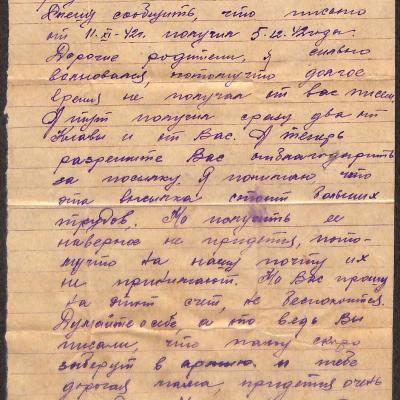 Спешу сообщить, что письмо
от 11.XI-42г. получил 5.12.42 года.
Дорогие родители, я сильно
волновался, потому что долгое
время не получал от вас писем.
А тут получил сразу два от
Клавы и от Вас. А теперь
разрешите Вас отблагодарить
за посылку. Я понимаю что
эта высылка стоит больших
трудов. Но получить ее
наверное не придется, пото-
мучто на нашу почту их
не принимают. Но Вас прошу
на этот счет, не беспокоится.
Думайте о себе, а то ведь Вы
писали, что папу скоро
заберут в армию и тебе
дорогая мама, придется очень